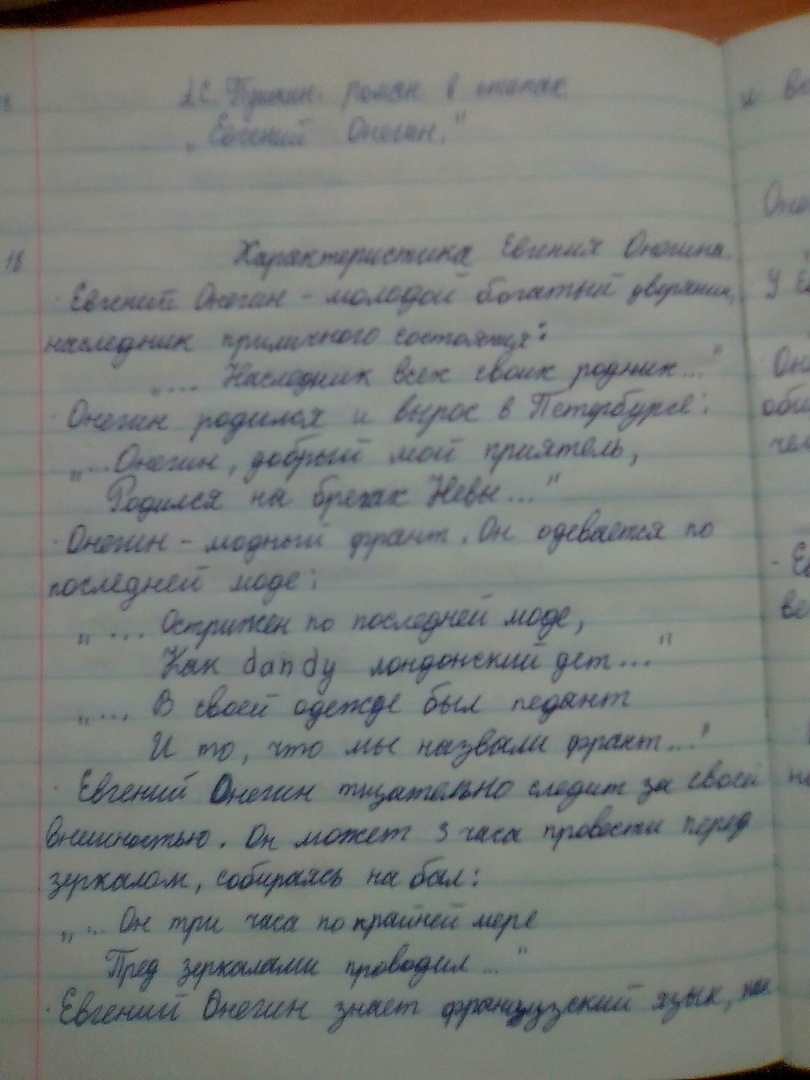 А.С. Пушкин. роман в стихах
„Евгений Онегин."
18
Характеристика Евгения Онегина.
· Евгений Онегин - молодой богатый дворянин,
наследник приличного состояния:
„... Наследник всех своих родных..."
· Онегин родился и вырос в Петербурге:
„...Онегин, добрый мой приятель,
Родился на брегах Невы..."
· Онегин - модный франт. Он одевается по
последней моде:
„... Острижен по последней моде,
Как dandy лондонский дет..."
„... В своей одежде был педант
И то, что мы назвали франт..."
· Евгений Онегин тщательно следит за своей
внешностью. Он может 3 часа провести перед
зеркалом, собираясь на бал:
„... Он три часа по крайней мере
Пред зеркалами проводил..."
· Евгений Онегин знает французский язык, как
и
Оне
У
Он
оби
чел